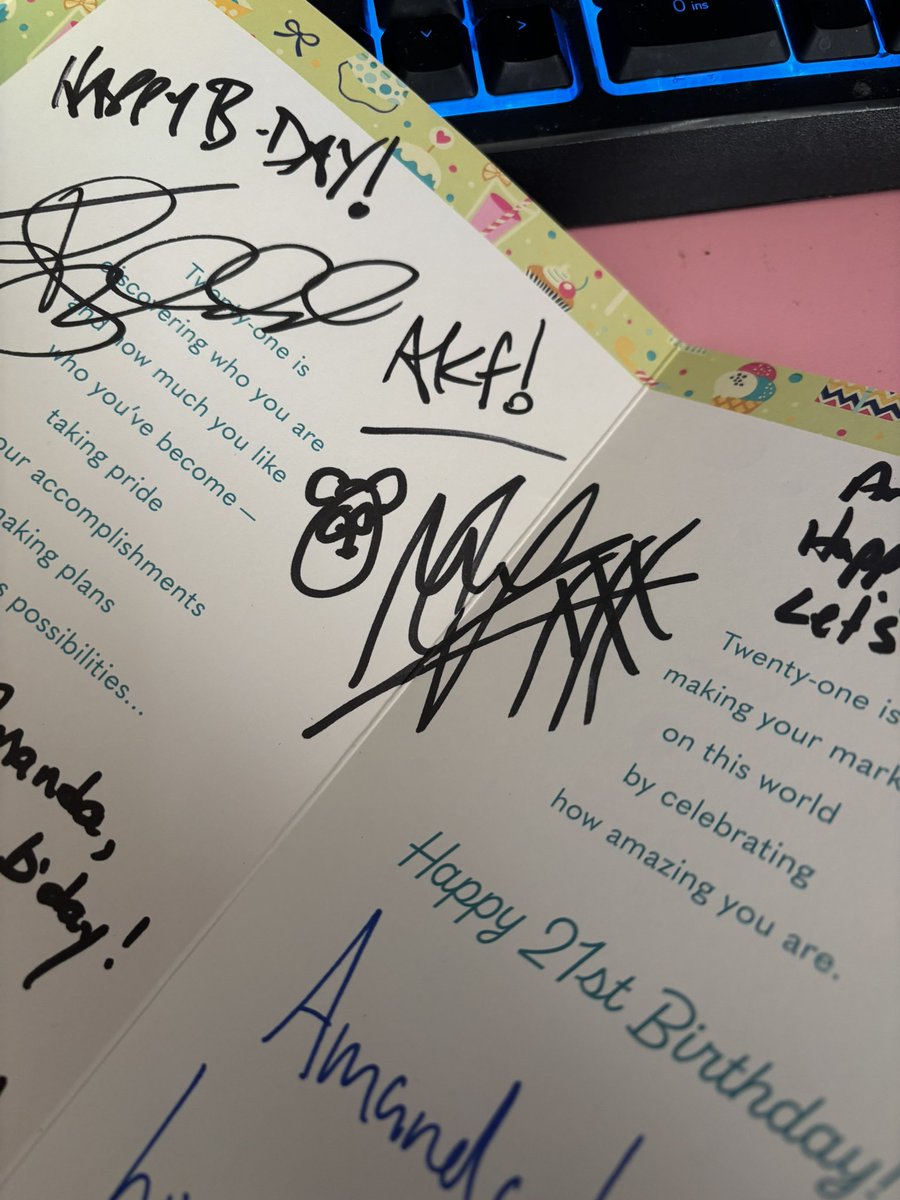 0 ins
HAPPY B-DAY!
Twenty-one is
discovering who you are
and how much you like
who you've become —
taking pride
our accomplishments
making plans
possibilities...
AKF!
Amanda,
b'day!
Happ
Let's
Twenty-one is
making your mark
on this world
by celebrating
how amazing you are.
Happy 21st Birthday!
Amanda!